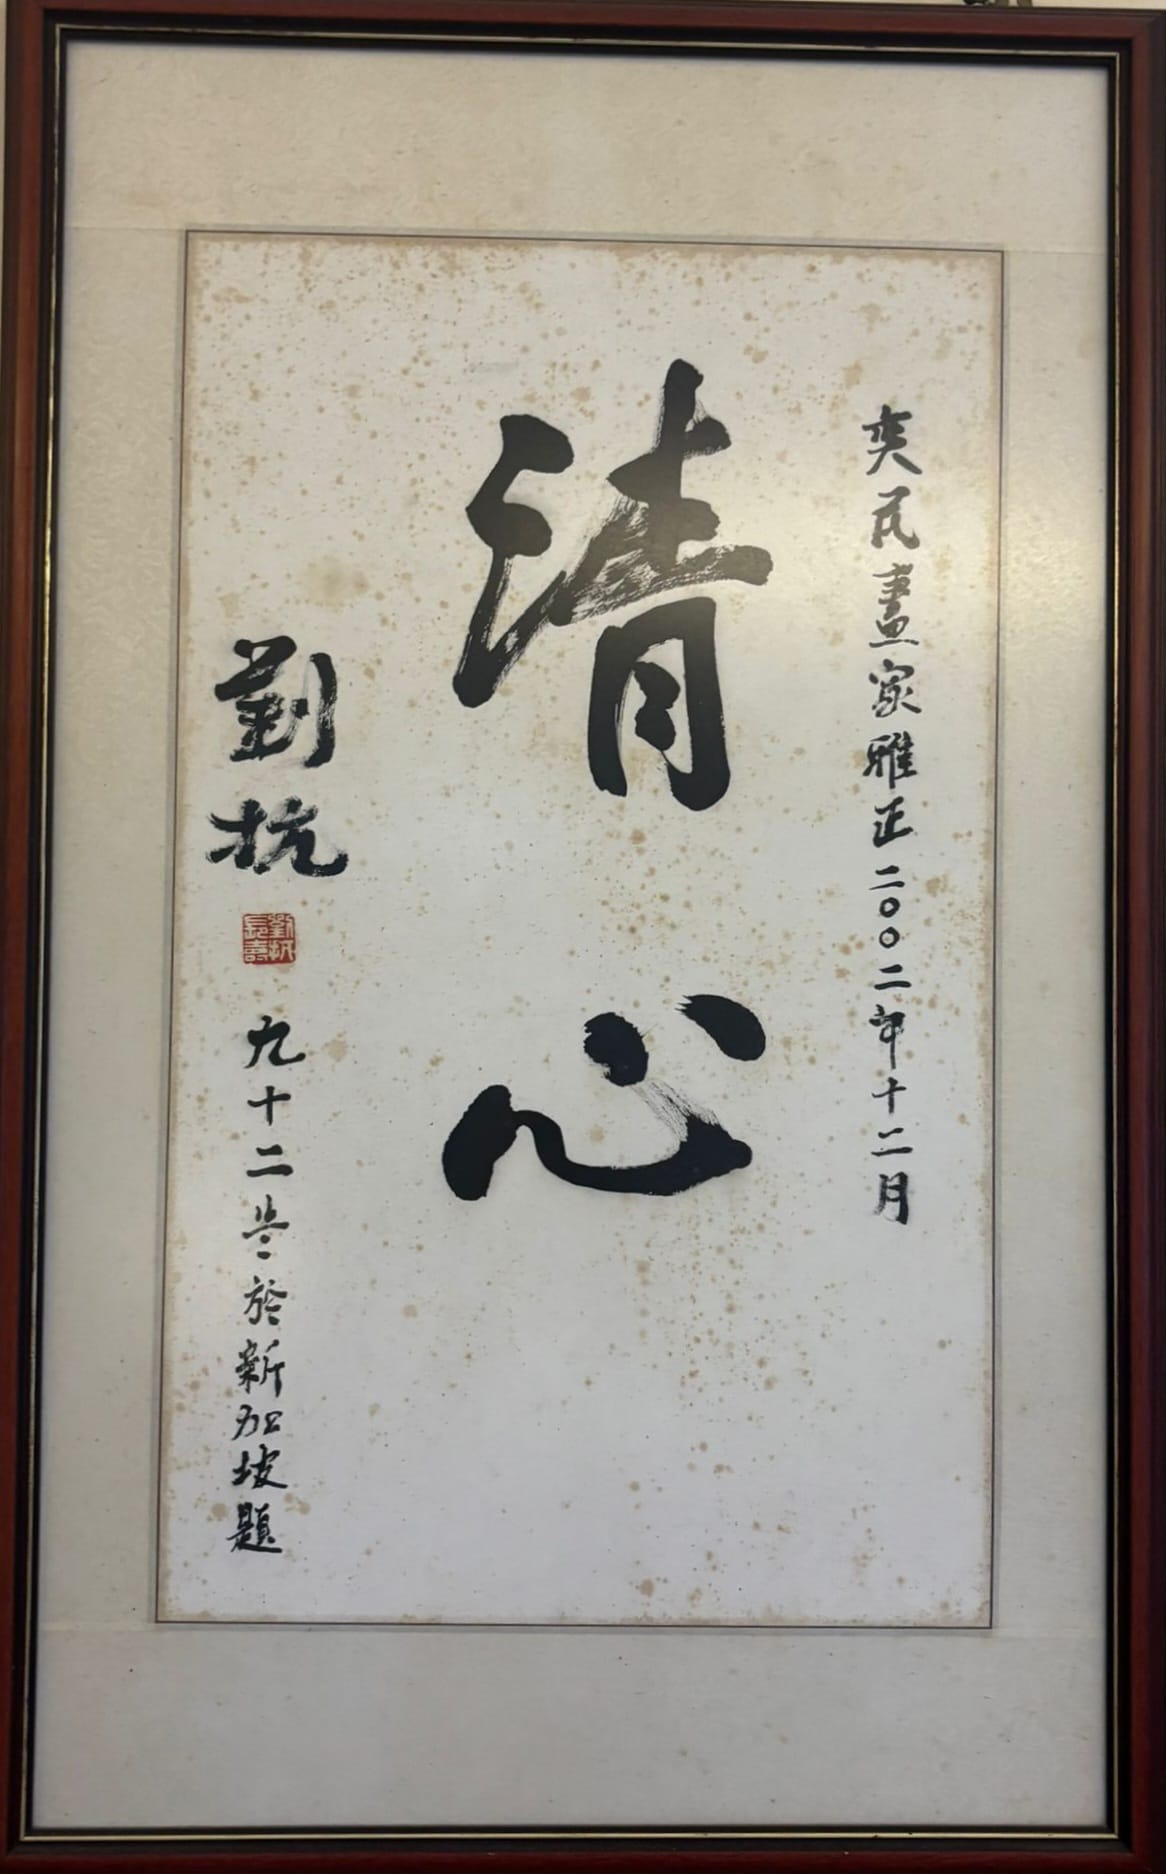 奕民畫家雅正二〇〇二年十二月
清心
劉抗
劉抗長壽
九十二岁於新加坡題